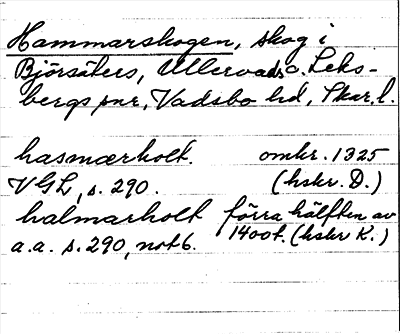 Hammarskogen, skog i
Björsäters, Ullervads o. Leks-
bergs snr, Vadsbo hd, Skar. l.
hasmærholt. omkr. 1325
VGL, s. 290. (hskr. D.)
halmarholt förra hälften av
a.a. s. 290, not 6. 1400t. (hskr K.)